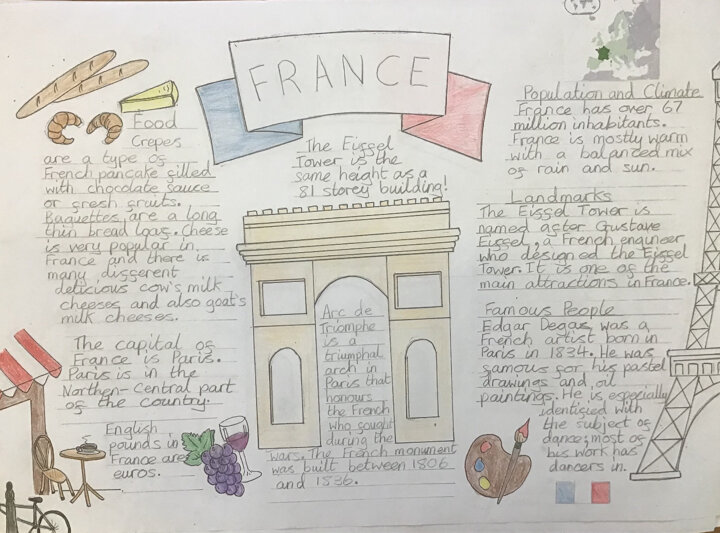 FRANCE
Food
Crepes
are a type of
French pancake filled
with chocolate sauce
or fresh fruits.
Baguettes are a long
thin bread loaf. Cheese
is very popular in
France and there is
many different
delicious cow's milk
cheeses and also goat's
milk cheeses.
The capital of
France is Paris.
Paris is in the
Northen-Central part
of the country.
English
pounds in
France are
euros.
The Eiffel
Tower is the
same height as a
81 storey building!
Arc de
Triomphe
is a
triumphal
arch in
Paris that
honours
the French
who fought
during the
wars. The French monument
was built between 1806
and 1836.
Population and Climate
France has over 67
million inhabitants.
France is mostly warm
with a balanced mix
of rain and sun.
Landmarks
The Eiffel Tower is
named after Gustave
Eiffel, a French engineer
who designed the Eiffel
Tower. It is one of the
main attractions in France.
Famous People
Edgar Degas, was a
French artist born in
Paris in 1834. He was
famous for his pastel
drawings and oil
paintings. He is especially
identified with
the subject of
dance; most of
his work has
dancers in.